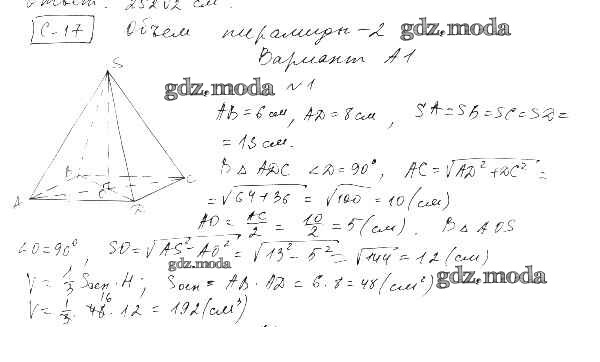 Ответ: 252√2 см.
С-17 Объем пирамиды-2 gdz.moda
Вариант А1
gdz.moda №1
S
AB=6см, AD=8см, SA=SB=SC=SD=
=13см.
В △ ADC ∠D=90°, AC=√AD²+DC²=
B C
A O D
=√64+36=√100=10(см)
AO=AC/2=10/2=5(см). В △ AOS
∠O=90°, SO=√AS²-AO²=√13²-5²=√144=12(см)
gdz.moda
V=1/3 Sосн·H; Sосн=AB·AD=6·8=48(см²) gdz.moda
V=1/3·48 16·12=192(см³)